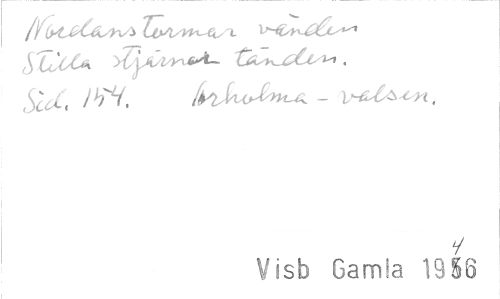 Nordanstormar vänden
Stilla stjärnor tänden.
Sid. 154. Arholma - valsen.
Visb Gamla 1946